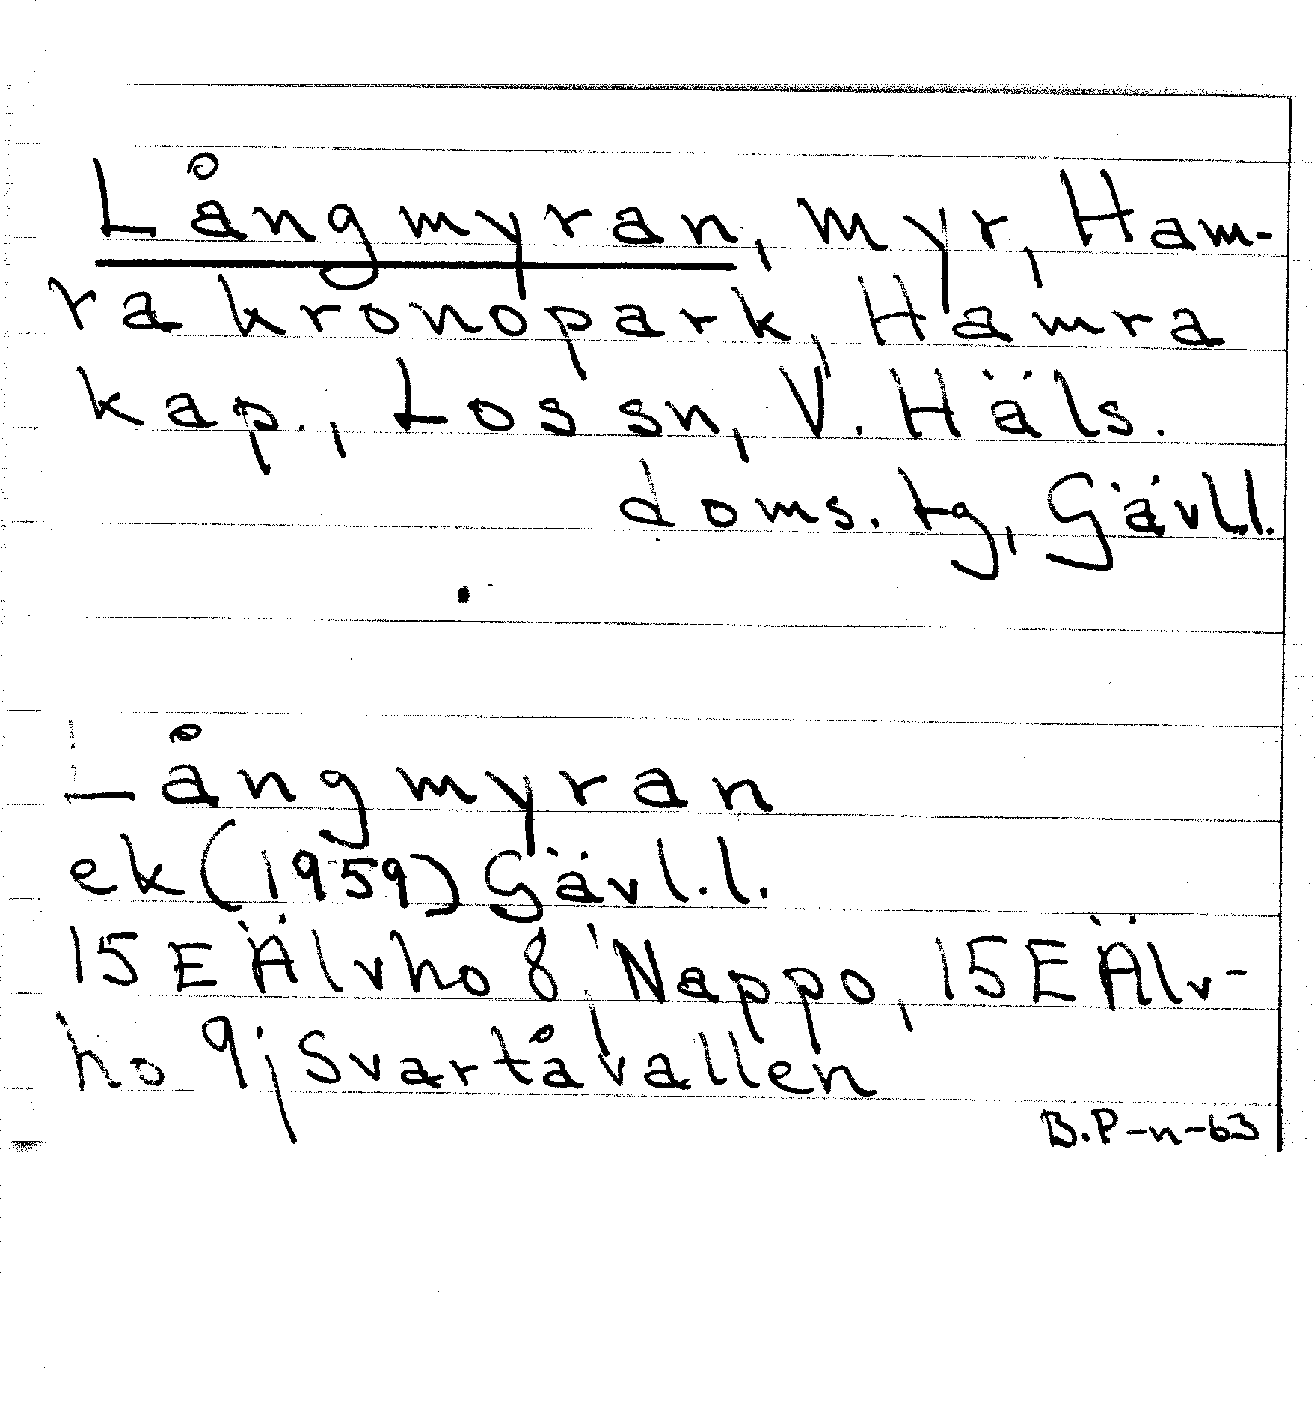 Långmyran, myr, Ham-
ra kronopark, Hamra
kap., Los sn, V. Häls.
doms. tg, Gävl.l.
Långmyran
ek (1959) Gävl.l.
15E Älvho 8; Nappo, 15E Älv-
ho 9; Svartåvallen
B.P-n-63